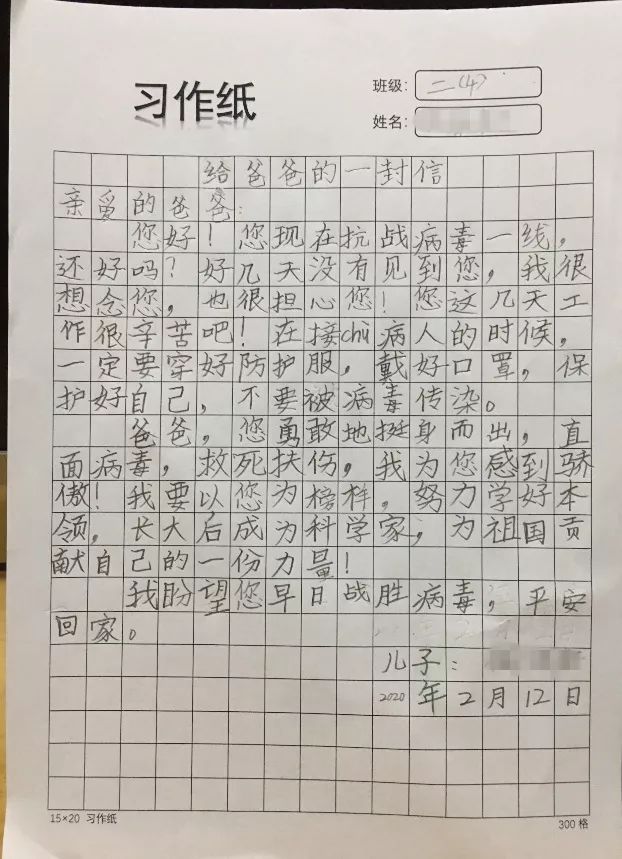 习作纸
班级: 二(4)
姓名:
给爸爸的一封信
亲爱的爸爸:
您好!您现在抗战病毒一线,
还好吗?好几天没有见到您,我很
想念您,也很担心您!您这几天工
作很辛苦吧!在接chù病人的时候,
一定要穿好防护服,戴好口罩,保
护好自己,不要被病毒传染。
爸爸,您勇敢地挺身而出,直
面病毒,救死扶伤,我为您感到骄
傲!我要以您为榜样,努力学好本
领,长大后成为科学家,为祖国贡
献自己的一份力量!
我盼望您早日战胜病毒,平安
回家。
儿子:
2020年2月12日
15×20 习作纸
300格